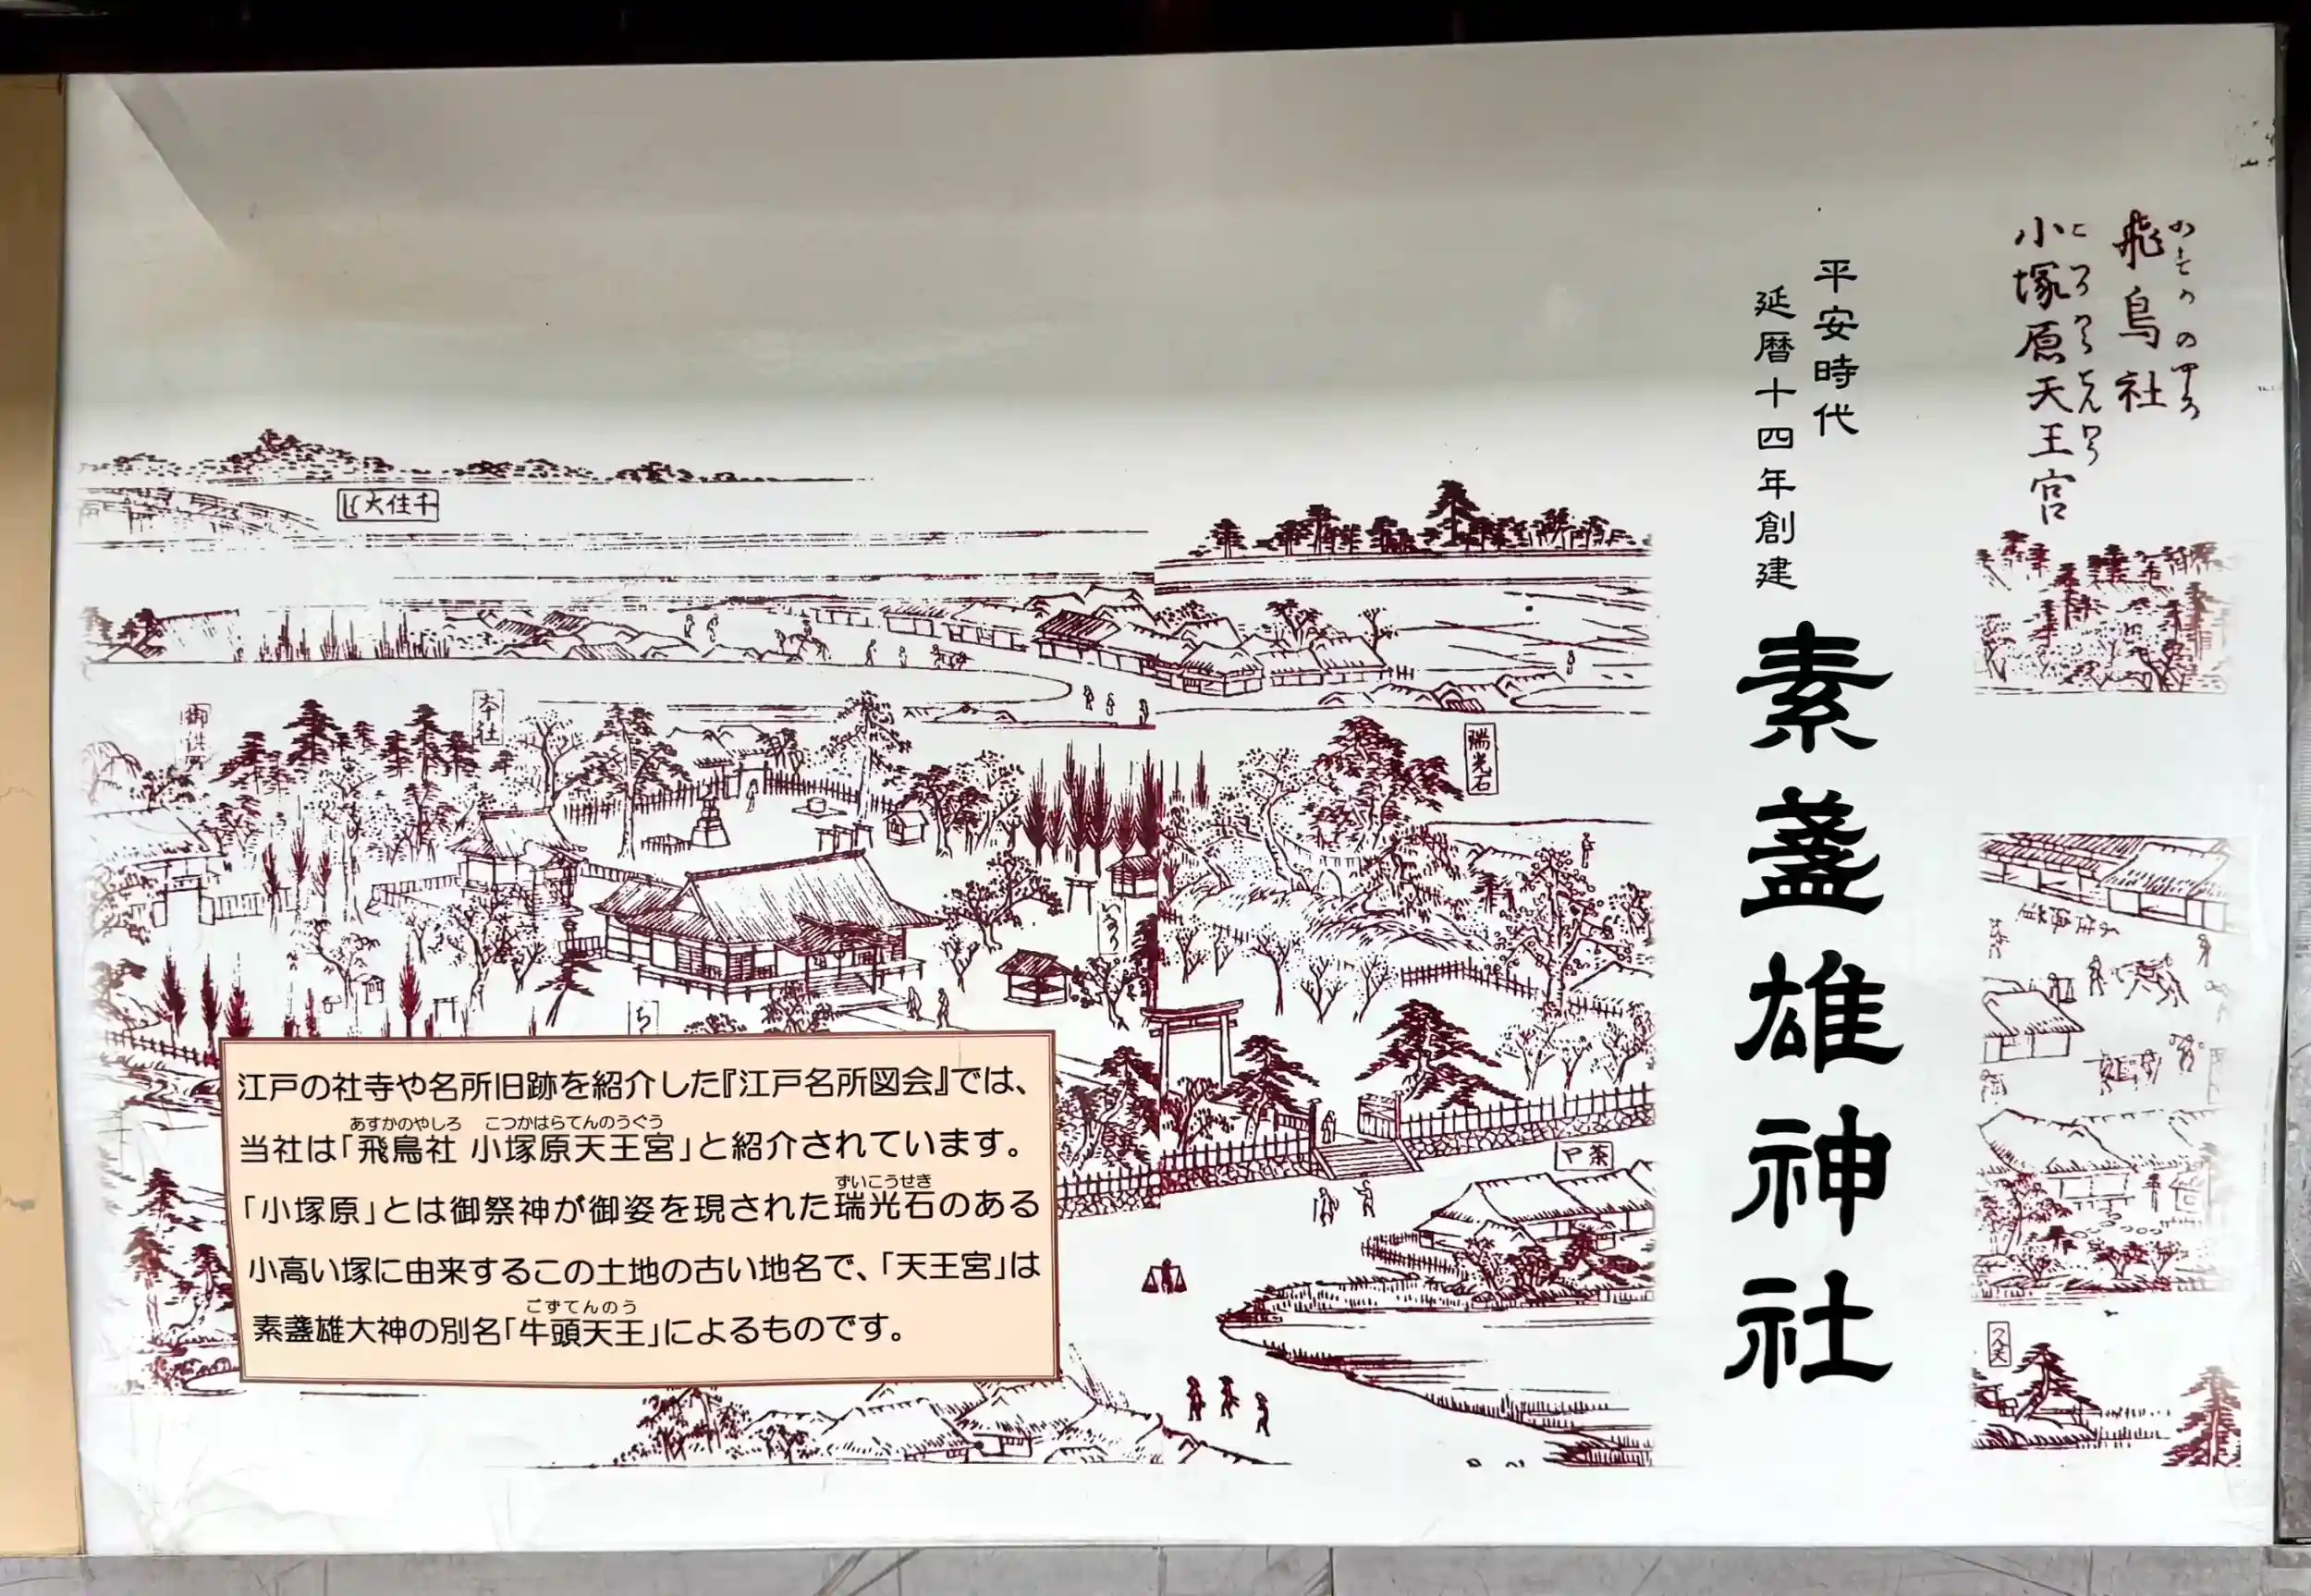 飛鳥社
小塚原天王宮
平安時代
延暦十四年創建
素盞雄神社
千住大
御供
本社
瑞光石
茶や
江戸の社寺や名所旧跡を紹介した『江戸名所図会』では、
あすかのやしろ こつかはらてんのうぐう
当社は「飛鳥社 小塚原天王宮」と紹介されています。
ずいこうせき
「小塚原」とは御祭神が御姿を現された瑞光石のある
小高い塚に由来するこの土地の古い地名で、「天王宮」は
ごずてんのう
素盞雄大神の別名「牛頭天王」によるものです。